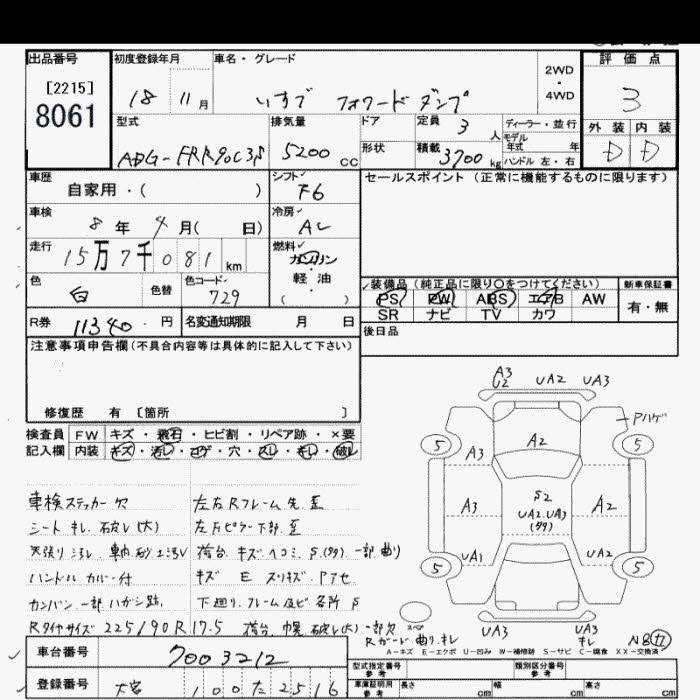 出品番号
[2215]
8061
初度登録年月
18 11月
車名・グレード
いすゞ フォワード ダンプ
2WD
・
4WD
評価点
3
外装 内装
D D
型式
ADG-FRR90C3S
排気量
5200cc
ドア
形状
定員 3人
積載 3700kg
ディーラー・並行
モデル
年式 年
ハンドル 左・右
車歴
自家用・( )
シフト
F6
セールスポイント(正常に機能するものに限ります)
車検
8年4月( 日)
冷房
AC
走行
15万7千081km
燃料
ガソリン
軽・油
( )
色
白
色替
色コード
729
装備品(純正品に限り○をつけてください)
PS PW ABS エア/B AW
SR ナビ TV カワ
新車保証書
有・無
R券
11340円
名変通知期限 月 日
後日品
注意事項申告欄(不具合内容等は具体的に記入して下さい)
修復歴 有 [箇所 ]
検査員 FW キズ・飛石・ヒビ割・リペア跡・×要
記入欄 内装 キズ・汚レ・コゲ・穴・スレ・キレ・破レ
車検ステッカー欠
シートキレ破レ(大)
天張り汚レ
ハンドルカバー付
カンバン一部ハガシ跡
Rタイヤサイズ 225/90R17.5
左右Rフレーム先歪
左Fピラー下部歪
荷台キズヘコミ 一部曲り
キズ E スリキズ Pアセ
下廻りフレーム及ビ各所S
荷台 幌破レ(大) 一部欠
Rガード曲り.キレ
A3
U2
UA2 UA3
Pハゲ
5 5
A3 A2
A3 S2 A2
UA2.UA3
UA1 UA2
5 5
スペ
UA3 UA3
キレ
A-キズ E-エクボ U-凹み W-補修跡 S-サビ C-腐食 XX-交換済
車台番号
7003212
登録番号
大宮 100 た 2516
型式指定番号
参考
類別区分番号
参考
車庫証明用
参考
長さ cm 幅 cm 高さ cm